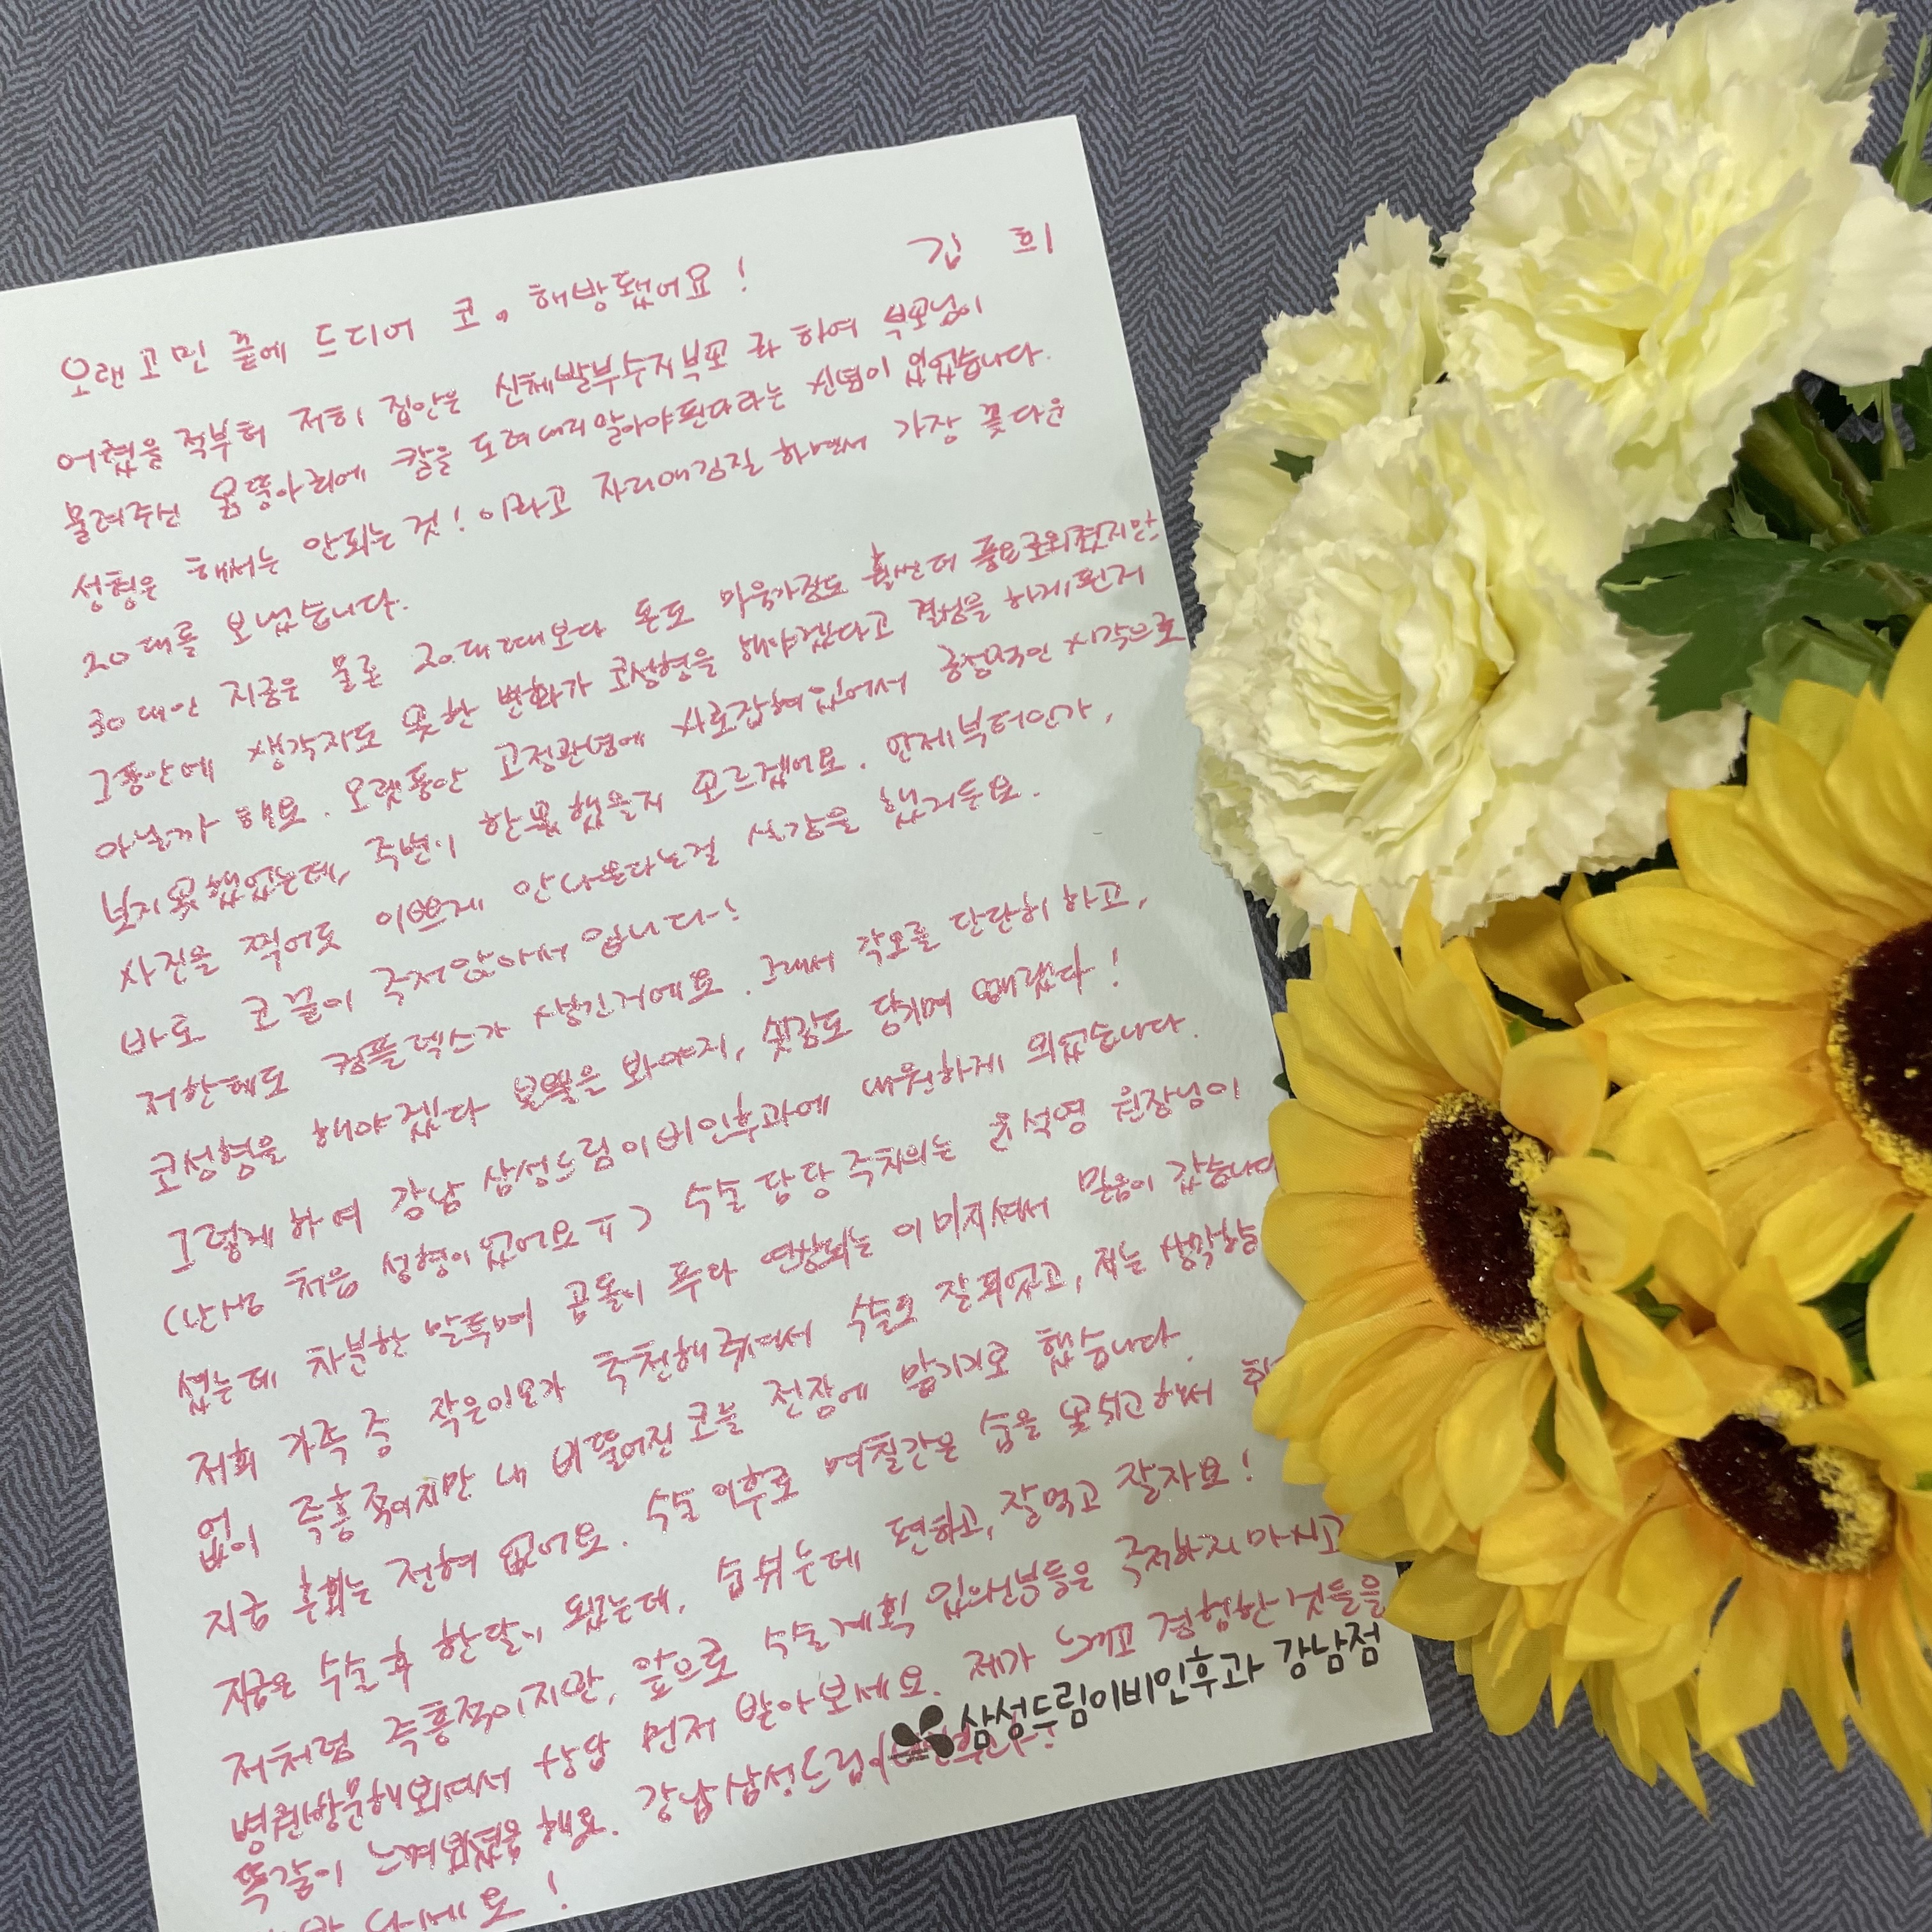 김 희
오랜고민 끝에 드디어 코, 해방됐어요!
어렸을 적부터 저희 집안은 신체발부수지부모 라 하여 부모님이
물려주신 몸뚱아리에 칼을 도려내지말아야된다라는 신념이 있었습니다.
성형은 해서는 안되는 것! 이라고 자리매김질 하면서 가장 꽃다운
20대를 보냈습니다.
30대인 지금은 물론 20대때보다 돈도 마음가짐도 훨씬더 풍요로워졌지만
그동안에 생각지도 못한 변화가 코성형을 해야겠다고 결심을 하게된거
아닐까 해요. 오랫동안 고정관념에 사로잡혀있어서 긍정적인 시각으로
보지못했었는데, 주변이 한몫했을지 모르겠어요. 언제부터인가,
사진을 찍어도 이쁘게 안나온다는걸 실감을 했거든요.
바로 코끝이 주저앉아서 입니다-!
저한테도 컴플렉스가 생긴거에요. 그래서 각오를 단단히 하고,
코성형을 해야겠다 본때을 봐야지, 쇳감도 당기며 때렸다!
그렇게하여 강남 삼성드림이비인후과에 내원하게 되었습니다.
(난생 처음 성형이었어요ㅠ) 수술담당주치의는 윤석영 원장님이
셨는데 차분한 말투며 곰돌이 푸라 연상되는 이미지셔서 믿음이 갔습니다
저희 가족중 작은이모가 추천해주셔서 수술도 잘되었고, 저는 생각할틈
없이 즉흥적이지만 내 비뚤어진 코를 전장에 맡기기로 했습니다.
지금 후회는 전혀 없어요. 수술 이후로 며칠간은 숨을 못쉬고해서
지금은 수술후 한달이 됐는데, 숨쉬는데 편하고, 잘먹고 잘자요!
저처럼 즉흥적이지만, 앞으로 수술계획 있으신분들은 주저하지마시고
병원방문해보셔서 상담 먼저 받아보세요. 제가 느끼고 경험한것들을
똑같이 느껴보셨음 해요. 강남삼성드림이
삼성드림이비인후과 강남점